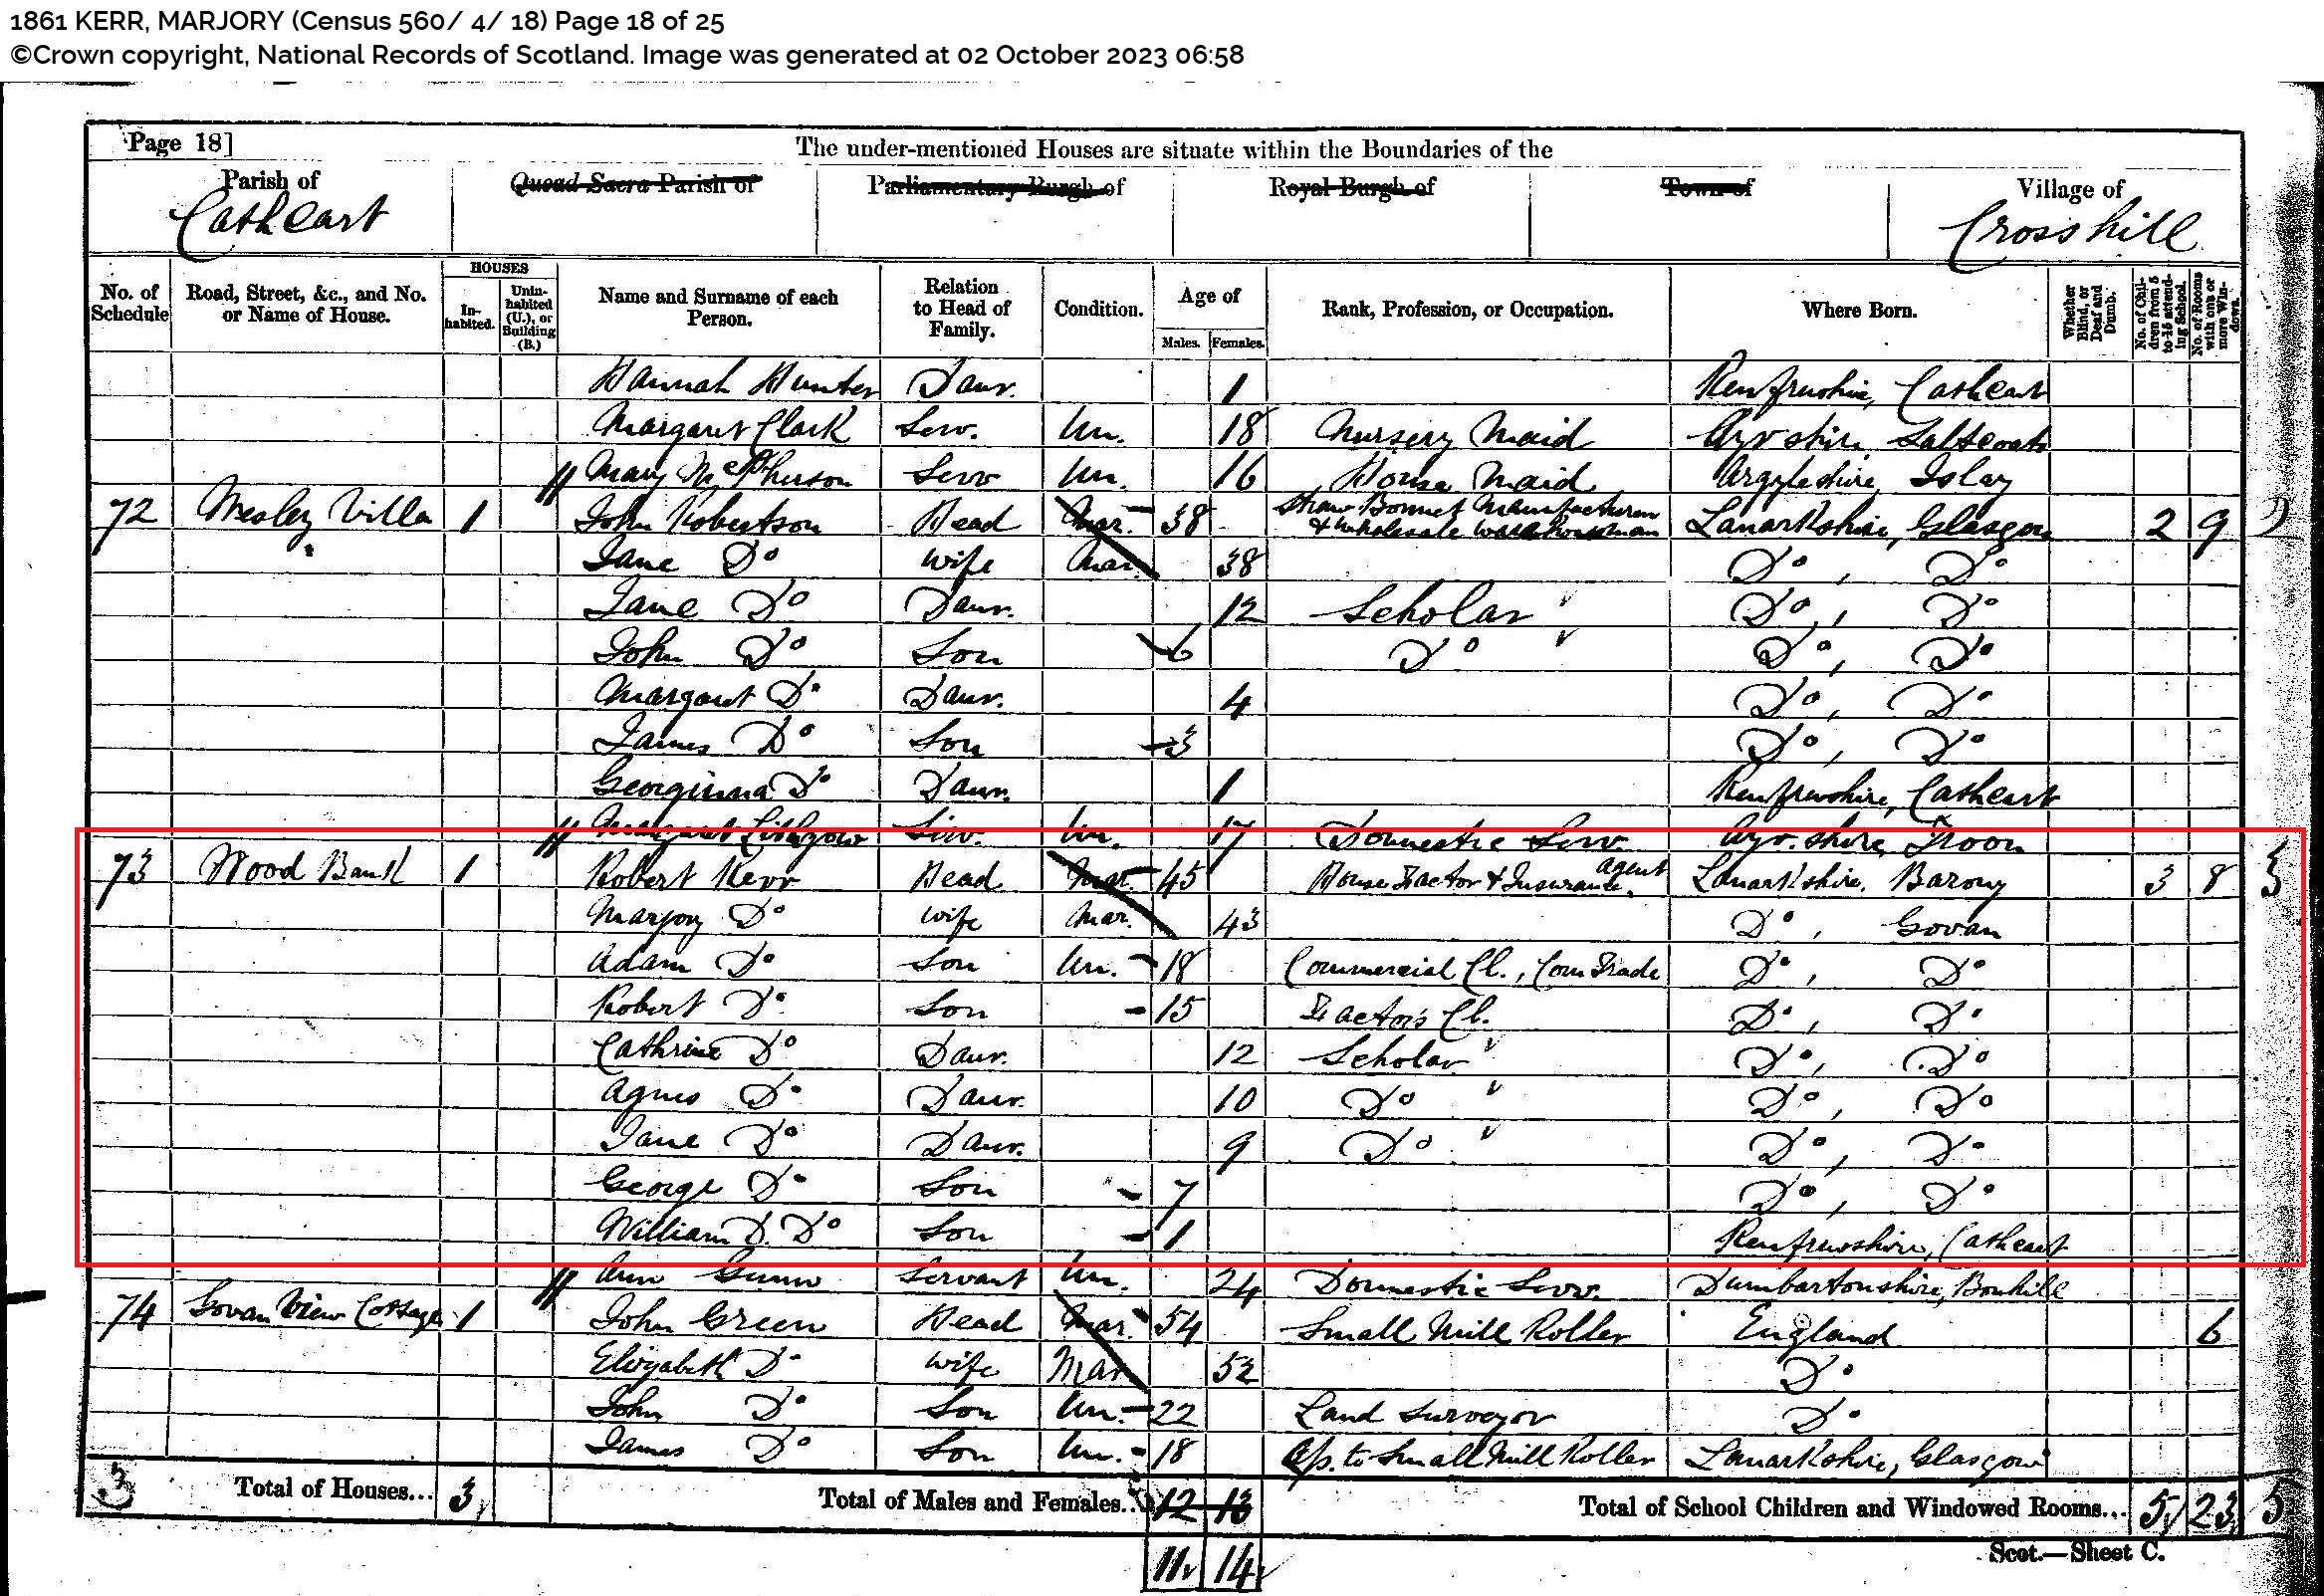 1861 KERR, MARJORY (Census 560/ 4/ 18) Page 18 of 25
©Crown copyright, National Records of Scotland. Image was generated at 02 October 2023 06:58
Page 18]
The under-mentioned Houses are situate within the Boundaries of the
Parish of Quoad Sacra Parish of Parliamentary Burgh of Royal Burgh of Town of Village of
Cathcart Crosshill
No. of Schedule Road, Street, &c., and No. or Name of House. HOUSES In-habited. Unin-habited (U.), or Building (B.) Name and Surname of each Person. Relation to Head of Family. Condition. Age of Males. Females. Rank, Profession, or Occupation. Where Born. Whether Blind, or Deaf and Dumb. No. of Chil-dren from 5 to 15 attend-ing School. No. of Rooms with one or more Win-dows.
Hannah Hunter Daur. 1 Renfrewshire, Cathcart
Margaret Clark Serv. Un. 18 Nursery Maid Ayrshire Saltcoats
Mary McPherson Serv Un. 16 House Maid Argyleshire, Islay
72 Wesley Villa 1 John Robertson Head Mar. 38 Straw Bonnet Manufacturer & wholesale warehouseman Lanarkshire, Glasgow 2 9 2
Jane Do wife Mar. 38 Do, Do
Jane Do Daur. 12 Scholar Do, Do
John Do Son 6 Do Do, Do
Margaret Do Daur. 4 Do, Do
James Do Son 3 Do, Do
Georginna Do Daur. 1 Renfrewshire, Cathcart
Margaret Lithgow Serv. Un. 17 Domestic Serv Ayr.shire, Troon
73 Wood Bank 1 Robert Kerr Head Mar. 45 House Factor & Insurance agent Lanarkshire. Barony 3 8 3
Marjory Do wife Mar. 43 Do, Govan
Adam Do Son Un. 18 Commercial Cl., Corn Trade Do, Do
Robert Do Son 15 Factors Cl. Do, Do
Cathrine Do Daur. 12 Scholar Do, Do
Agnes Do Daur. 10 Do Do, Do
Jane Do Daur. 9 Do Do, Do
George Do Son 7 Do, Do
William D. Do Son 1 Renfrewshire, Cathcart
Ann Gunn Servant Un. 24 Domestic Serv. Dumbartonshire, Bonhill
74 Govan View Cottage 1 John Green Head Mar. 54 Small Mill Roller England 6
Elizabeth Do wife Mar 52 Do
John Do Son Un. 22 Land Surveyor Do
James Do Son Un. 18 Ap. to Small Mill Roller Lanarkshire, Glasgow
3 Total of Houses... 3 Total of Males and Females... 12 13 Total of School Children and Windowed Rooms... 5 23 5
11 14
Scot.—Sheet C.